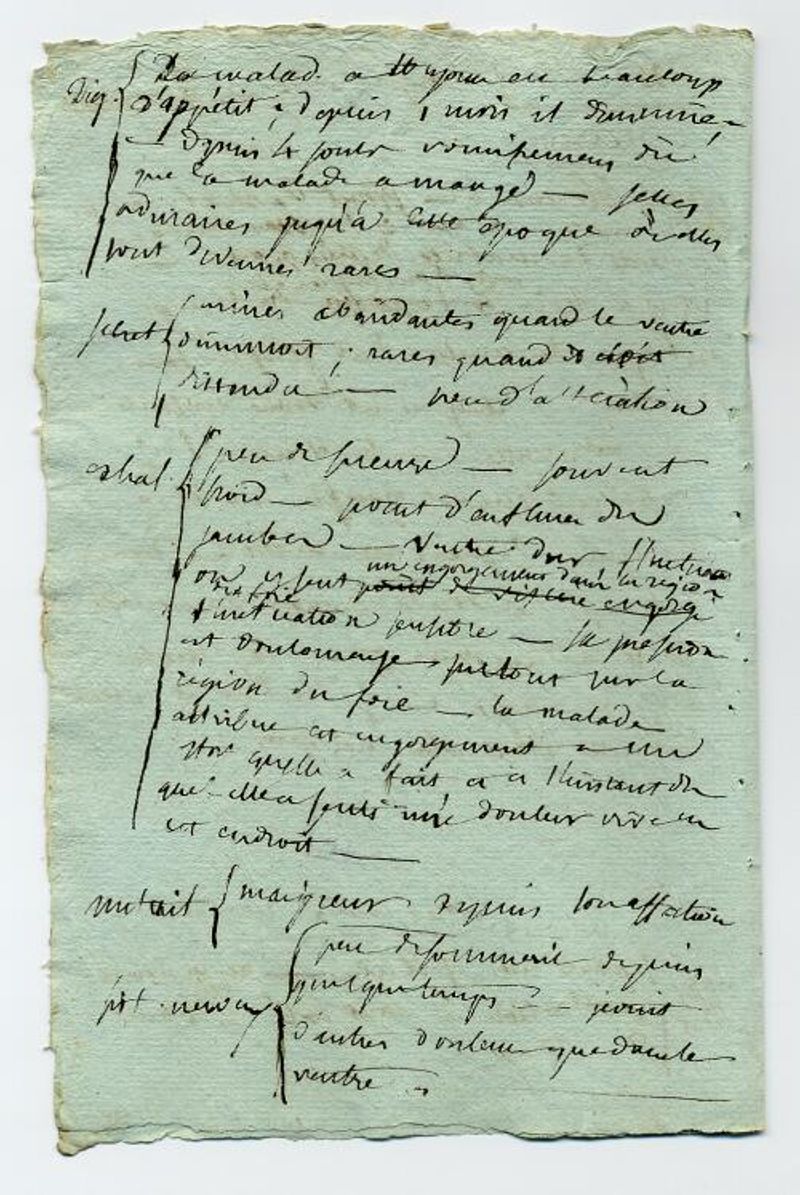 Dig. La malad. a toujours eu beaucoup
d'appétit, depuis 1 mois il diminue,
— depuis 4 jours vomissemens dès
que la malade a mangé — selles
ordinaires jusqu'à cette époque où elles
sont devenues rares —
secret urines abondantes quand le ventre
diminuoit ; rares quand il étoit
distendu — peu d'altération
exhal. peu de sueurs — souvent
froid — point d'enflure des
jambes — ventre dur
on y sent point de viscere engorgé
un engorgement dans la region
du foie
fluctuation — la pression
est douloureuse surtout sur la
région du foie — la malade
attribue cet engorgement a un
qu'elle a fait et a l'instant du
quel elle a senti une douleur vive en
cet endroit —
nutrit maigreur depuis son affection
syst. nerveux peu de sommeil depuis
quelque temps — point
d'autres douleurs que dans le
ventre